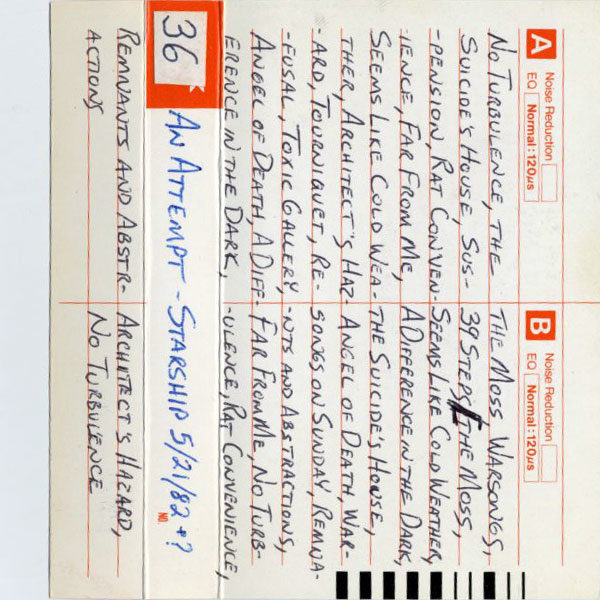 A
Noise Reduction
EQ Normal:120µs
NO TURBULENCE, THE
SUICIDE'S HOUSE, SUS-
-PENSION, RAT CONVEN-
-IENCE, FAR FROM ME,
SEEMS LIKE COLD WEA-
THER, ARCHITECT'S HAZ-
-ARD, TOURNIQUET, RE-
-FUSAL, TOXIC GALLERY,
ANGEL OF DEATH, A DIFF-
ERENCE IN THE DARK,
B
Noise Reduction
EQ Normal:120µs
THE MOSS WARSONGS,
39 STEPS [THE MOSS,
SEEMS LIKE COLD WEATHER,
A DIFFERENCE IN THE DARK,
THE SUICIDE'S HOUSE,
ANGEL OF DEATH, WAR-
SONGS ON SUNDAY, REMNA-
-NTS AND ABSTRACTIONS,
FAR FROM ME, NO TURB-
-ULENCE, RAT CONVENIENCE,
36 AN ATTEMPT - STARSHIP 5/21/82 + ?
NO.
REMNANTS AND ABSTR-
ACTIONS
ARCHITECT'S HAZARD,
NO TURBULENCE